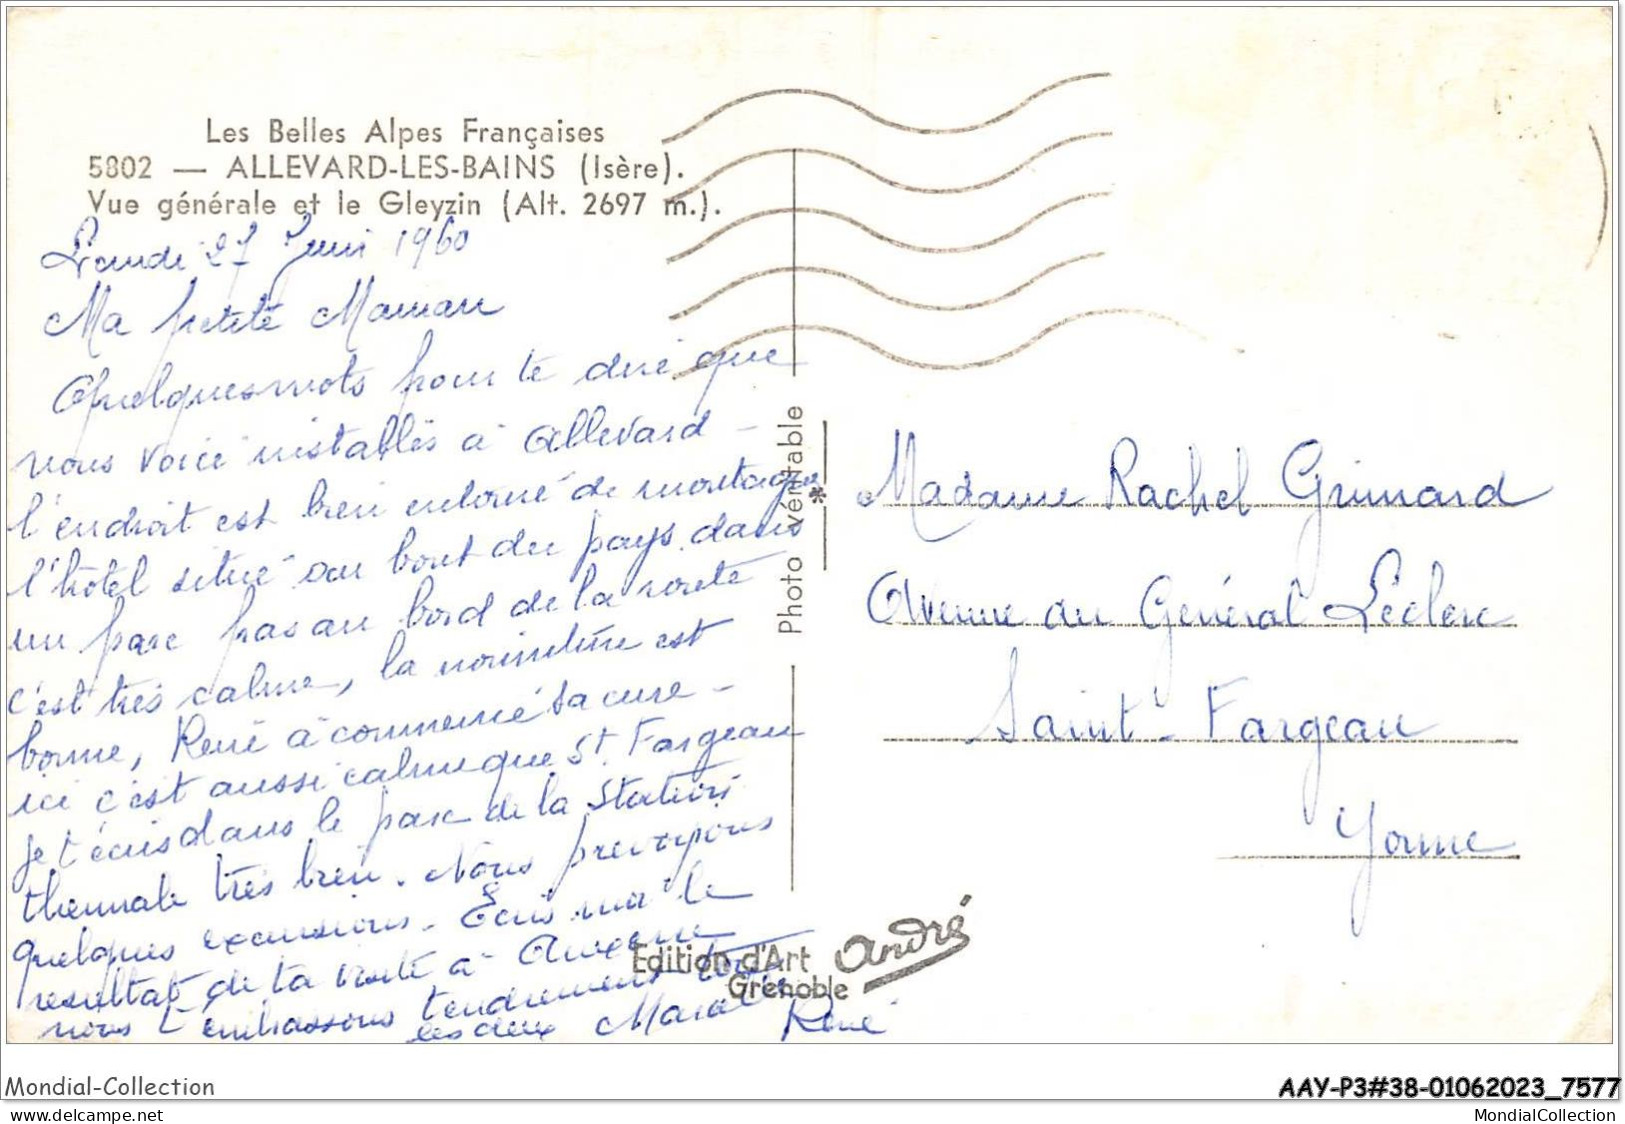 Les Belles Alpes Françaises
5802 — ALLEVARD-LES-BAINS (Isère).
Vue générale et le Gleyzin (Alt. 2697 m.).
Lundi 27 Juin 1960
Ma petite Maman
Quelques mots pour te dire que
nous voici installés à Allevard -
l'endroit est bien entouré de montagne
l'hôtel situé au bout du pays dans
un parc pas au bord de la route
c'est très calme, la nourriture est
bonne, René à commencé sa cure -
ici c'est aussi calme que St. Fargeau
je t'écris dans le parc de la Station
thermale très bien. Nous prevoyons
quelques excursions. Ecris moi le
resultat de ta visite à Auxerre
nous t'embrassons tendrement tous
les deux
René
Photo véritable
*
Edition d'Art André
Grenoble
Madame Rachel Grimard
Avenue du Général Leclerc
Saint-Fargeau
Yonne
Mondial-Collection
AAY-P3#38-01062023_7577
delcampe.net
MondialCollection